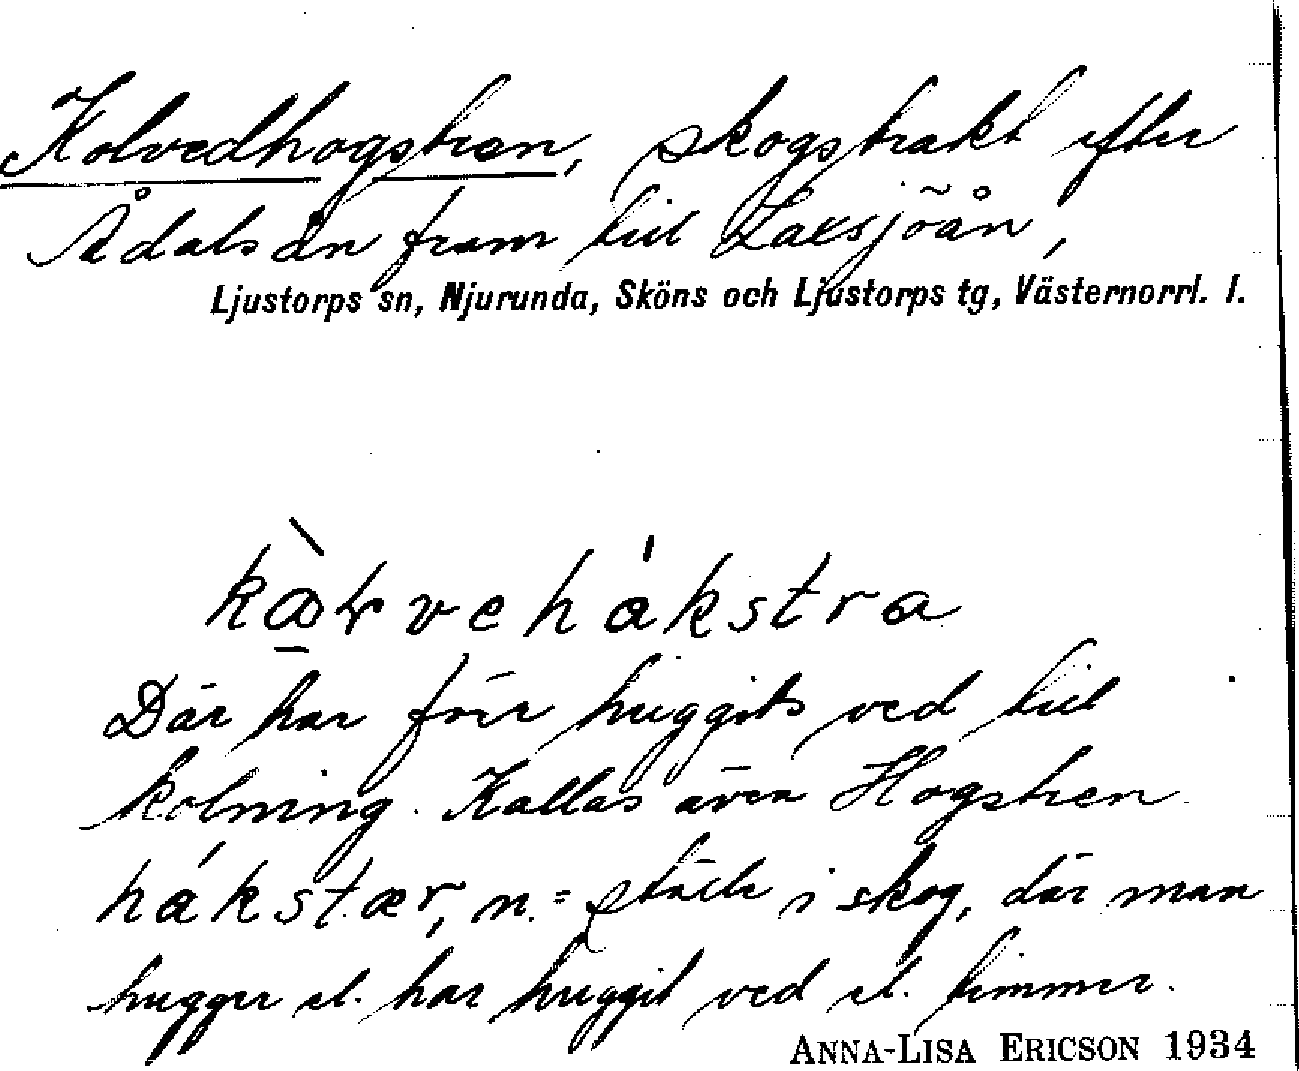 Kolvedhogstren, skogstrakt efter
Ådalsån fram till Laxsjöån,
Ljustorps sn, Njurunda, Sköns och Ljustorps tg, Västernorrl. l.
Där har förr huggits ved till
kolning. Kallas även Hogstren
hákstær, n. = ställe i skog, där man
hugger el. har huggit ved el. timmer.
ANNA-LISA ERICSON 1934